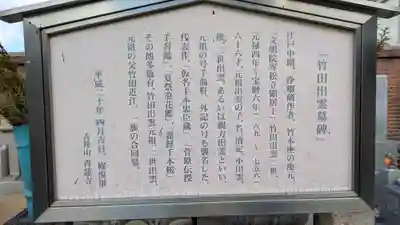 「竹田出雲墓碑」
江戸中期、浄瑠璃作者、竹本座の座元、
「文明院寄松立顕居士」竹田出雲二世、
元禄四年～宝暦六年(一六九一～一七五六)
六十六才、元祖出雲の子、名清定、小出雲、
後、二世出雲、あるいは親方出雲といい、
元祖の号千前軒、外記の号も襲名した。
代表作、「仮名手本忠臣蔵」「菅原伝授
手習鑑」「夏祭浪花鑑」「義経千本桜」
その他多数有。竹田出雲元祖、三世出雲、
元祖の父竹田近江、一族の合同墓。
平成二十年四月吉日、
青蓮寺